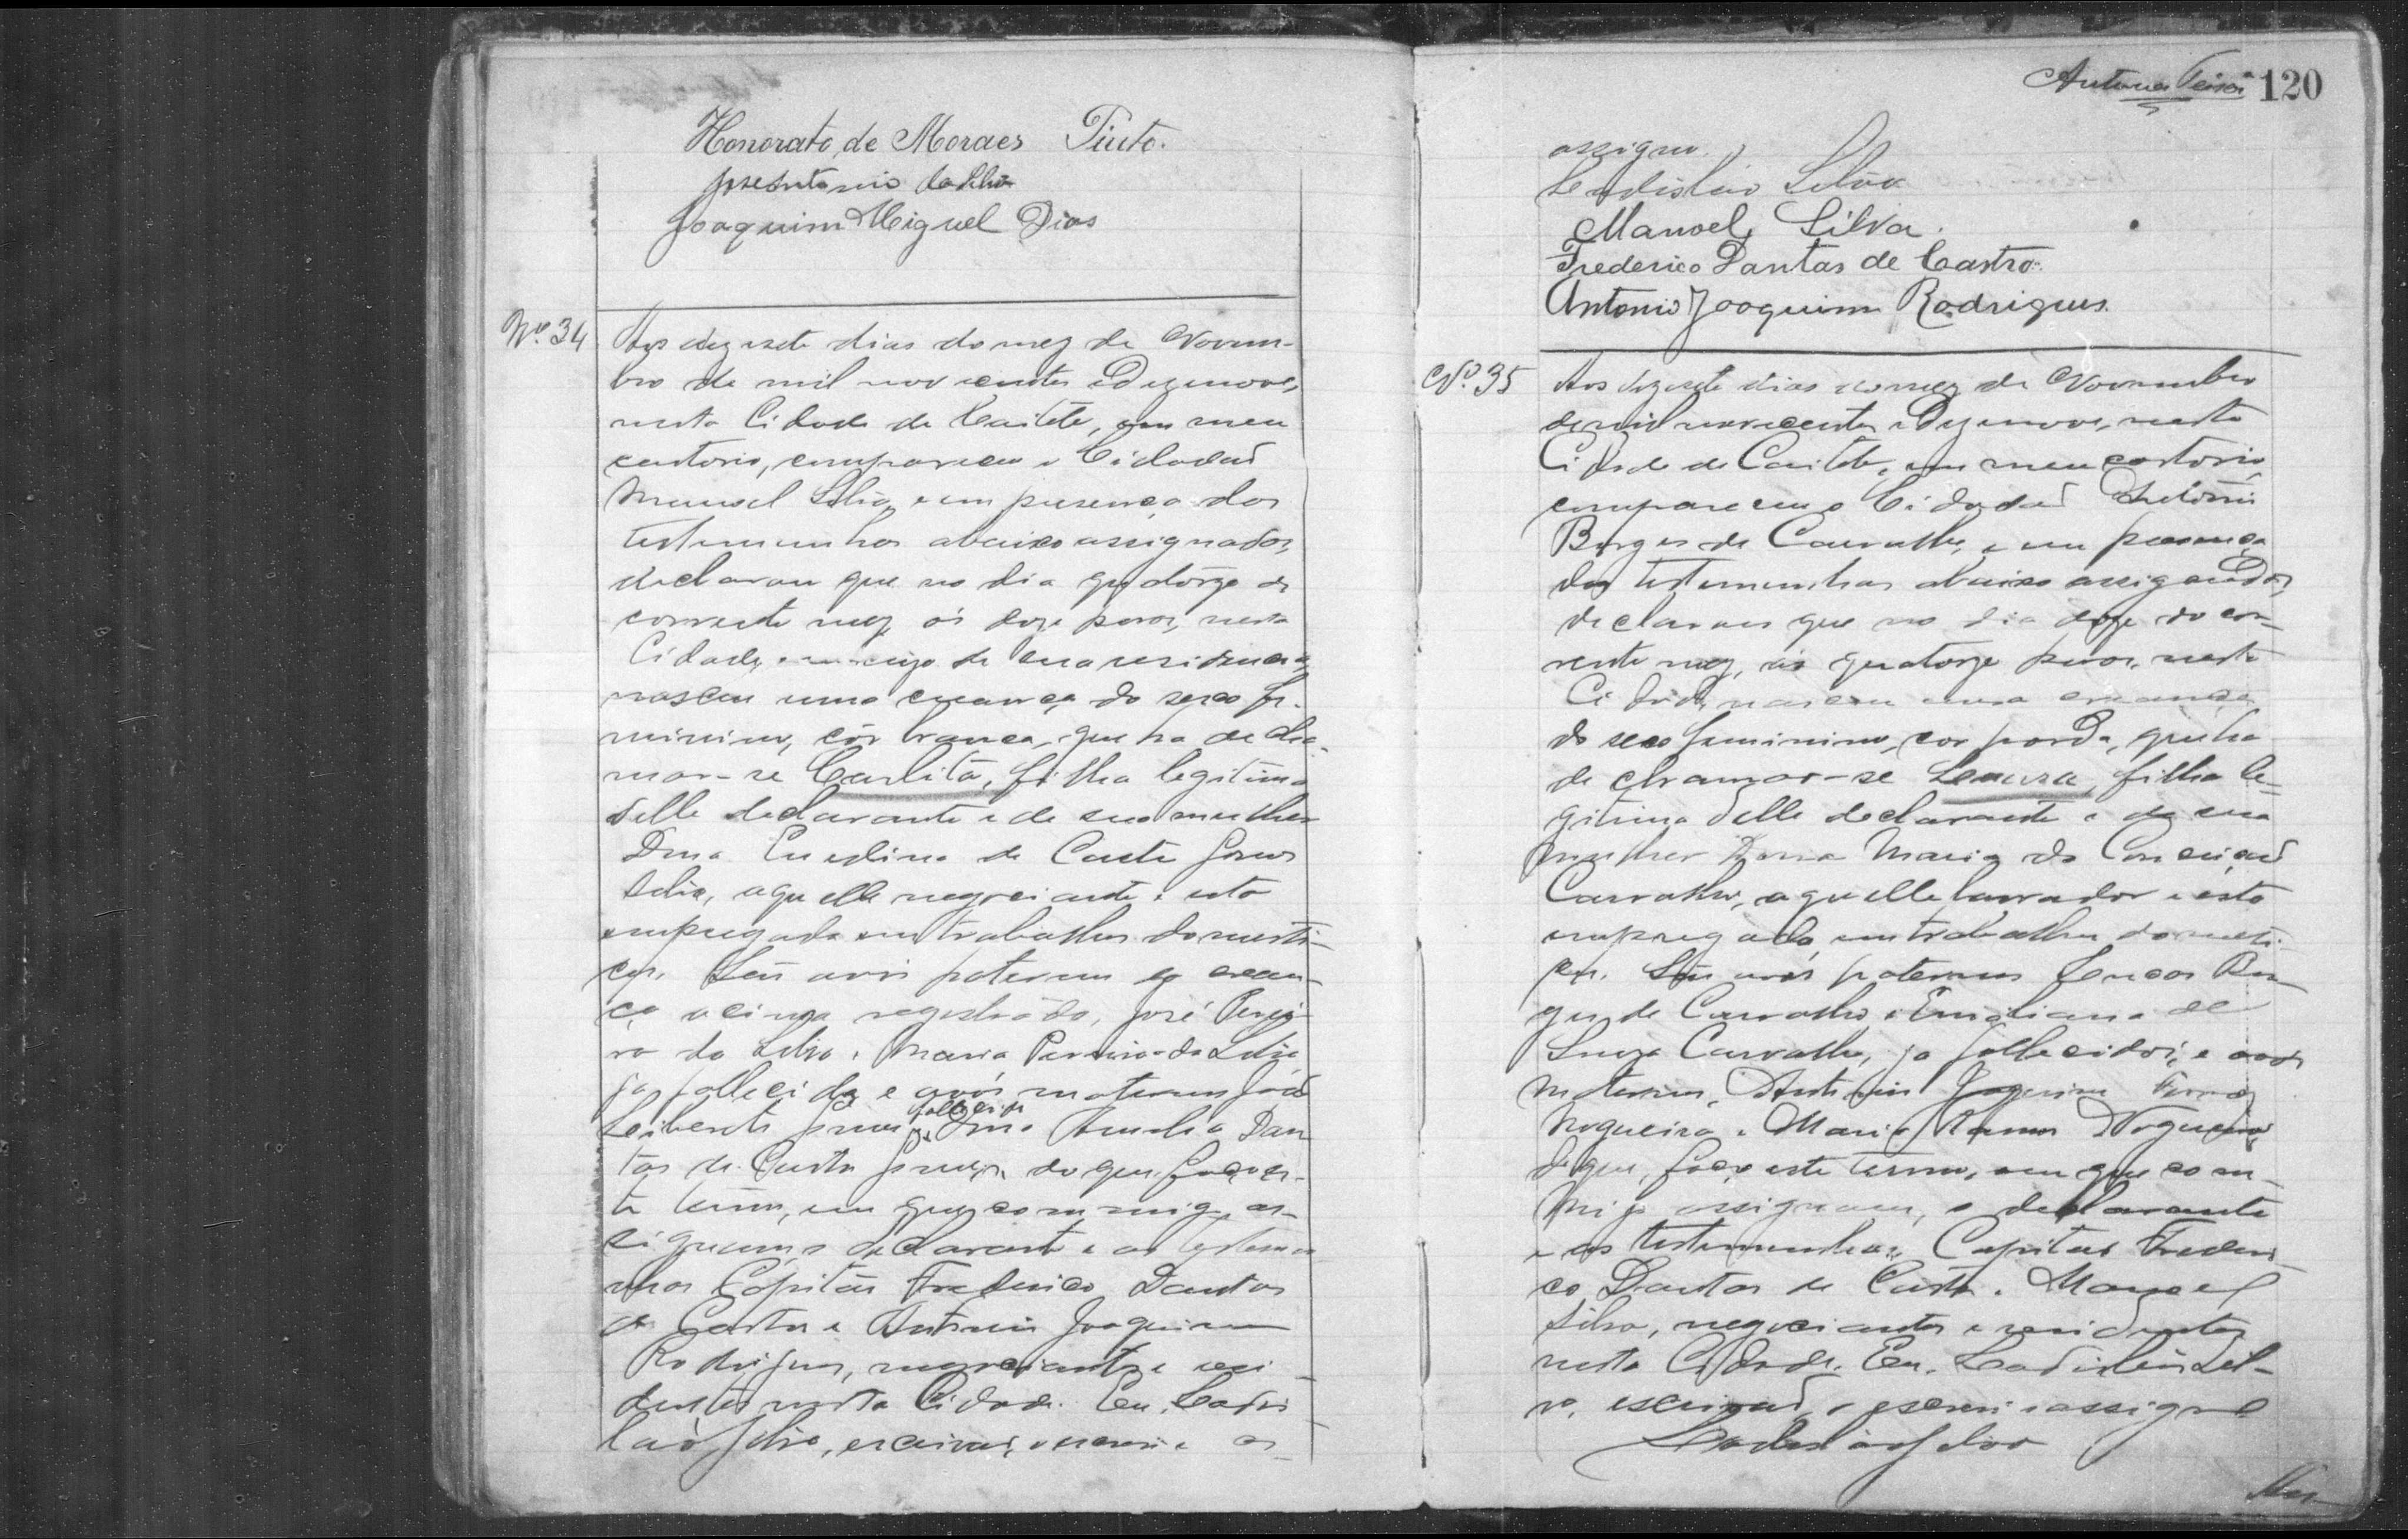 Honorato de Moraes Pinto.
José Antonio da Silva
Joaquim Miguel Dias
Nº. 34
Aos dezesete dias do mez de Novem-
bro de mil novecentos e Dezenove,
nesta Cidade de Caiteté, em meu
cartorio, compareceu o Cidadão
Manoel Silva, e em presença das
testemunhas abaixo assignadas,
declarou que no dia quatorze do
corrente mez, ás doze horas, nesta
Cidade, em casa de sua residencia,
nasceu uma creança do sexo fe-
minino, côr branca, que ha de cha-
mar-se Carlita, filha legitima
delle declarante e de sua mulher
Dona de Castro
Silva, aquelle negociante e esta
empregada em trabalhos domesti-
cos. São avós paternos da crean-
ça acima registrada, José Perei-
ra da Silva e Maria Pereira da Silva
ja fallecida e avós maternos José
fallecido
Dona Amelia Dan
tas de Castro do que faço es-
te termo, em que commigo as-
signam, o declarante e as testemu
nhas Capitão Frederico Dantas
de Castro e Antonio Joaquim
Rodrigues, negociantes e resi-
dentes nesta Cidade. Eu, Ladis
lao Silva, escrivão, o escrevi e as-
120
assigno.
Ladislao Silva
Manoel Silva.
Frederico Dantas de Castro.
Antonio Joaquim Rodrigues.
Nº. 35
Aos dezesete dias do mez de Novembro
de mil novecentos e Dezenove, nesta
Cidade de Caiteté, em meu cartorio,
compareceu o Cidadão Antonio
Borges de Carvalho, e em presença
das testemunhas abaixo assignadas,
declarou que no dia doze do cor-
rente mez, ás quatorze horas, nesta
Cidade, nasceu uma creança
do sexo feminino, cor parda, que ha
de chamar-se filha le-
gitima delle declarante e de sua
mulher Dona Maria da Conceição
Carvalho, aquelle lavrador e esta
empregada em trabalhos domesti-
cos. São avós paternos Lucas Bor
ges de Carvalho e Emiliana de
Souza Carvalho, ja fallecidos, e avós
maternos, Antonio Joaquim
Nogueira e Maria Ramos Nogueira,
do que, faço este termo, em que com-
migo assignam, o declarante
e as testemunhas, Capitão Frederi-
co Dantas de Castro e Manoel
Silva, negociantes e residentes
nesta Cidade. Eu, Ladislao Sil-
va, escrivão, o escrevi e assigno
Ladislao Silva